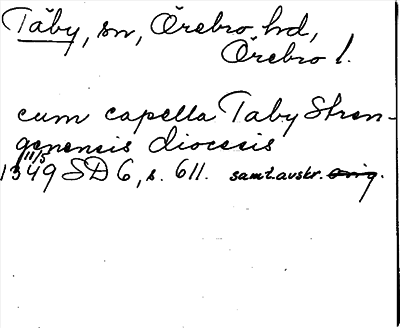 Täby, sn, Örebro hd,
Örebro l.
cum capella Taby Stren-
genensis diocesis
11/5
1349 SD 6, s. 611. samt.avskr. orig.